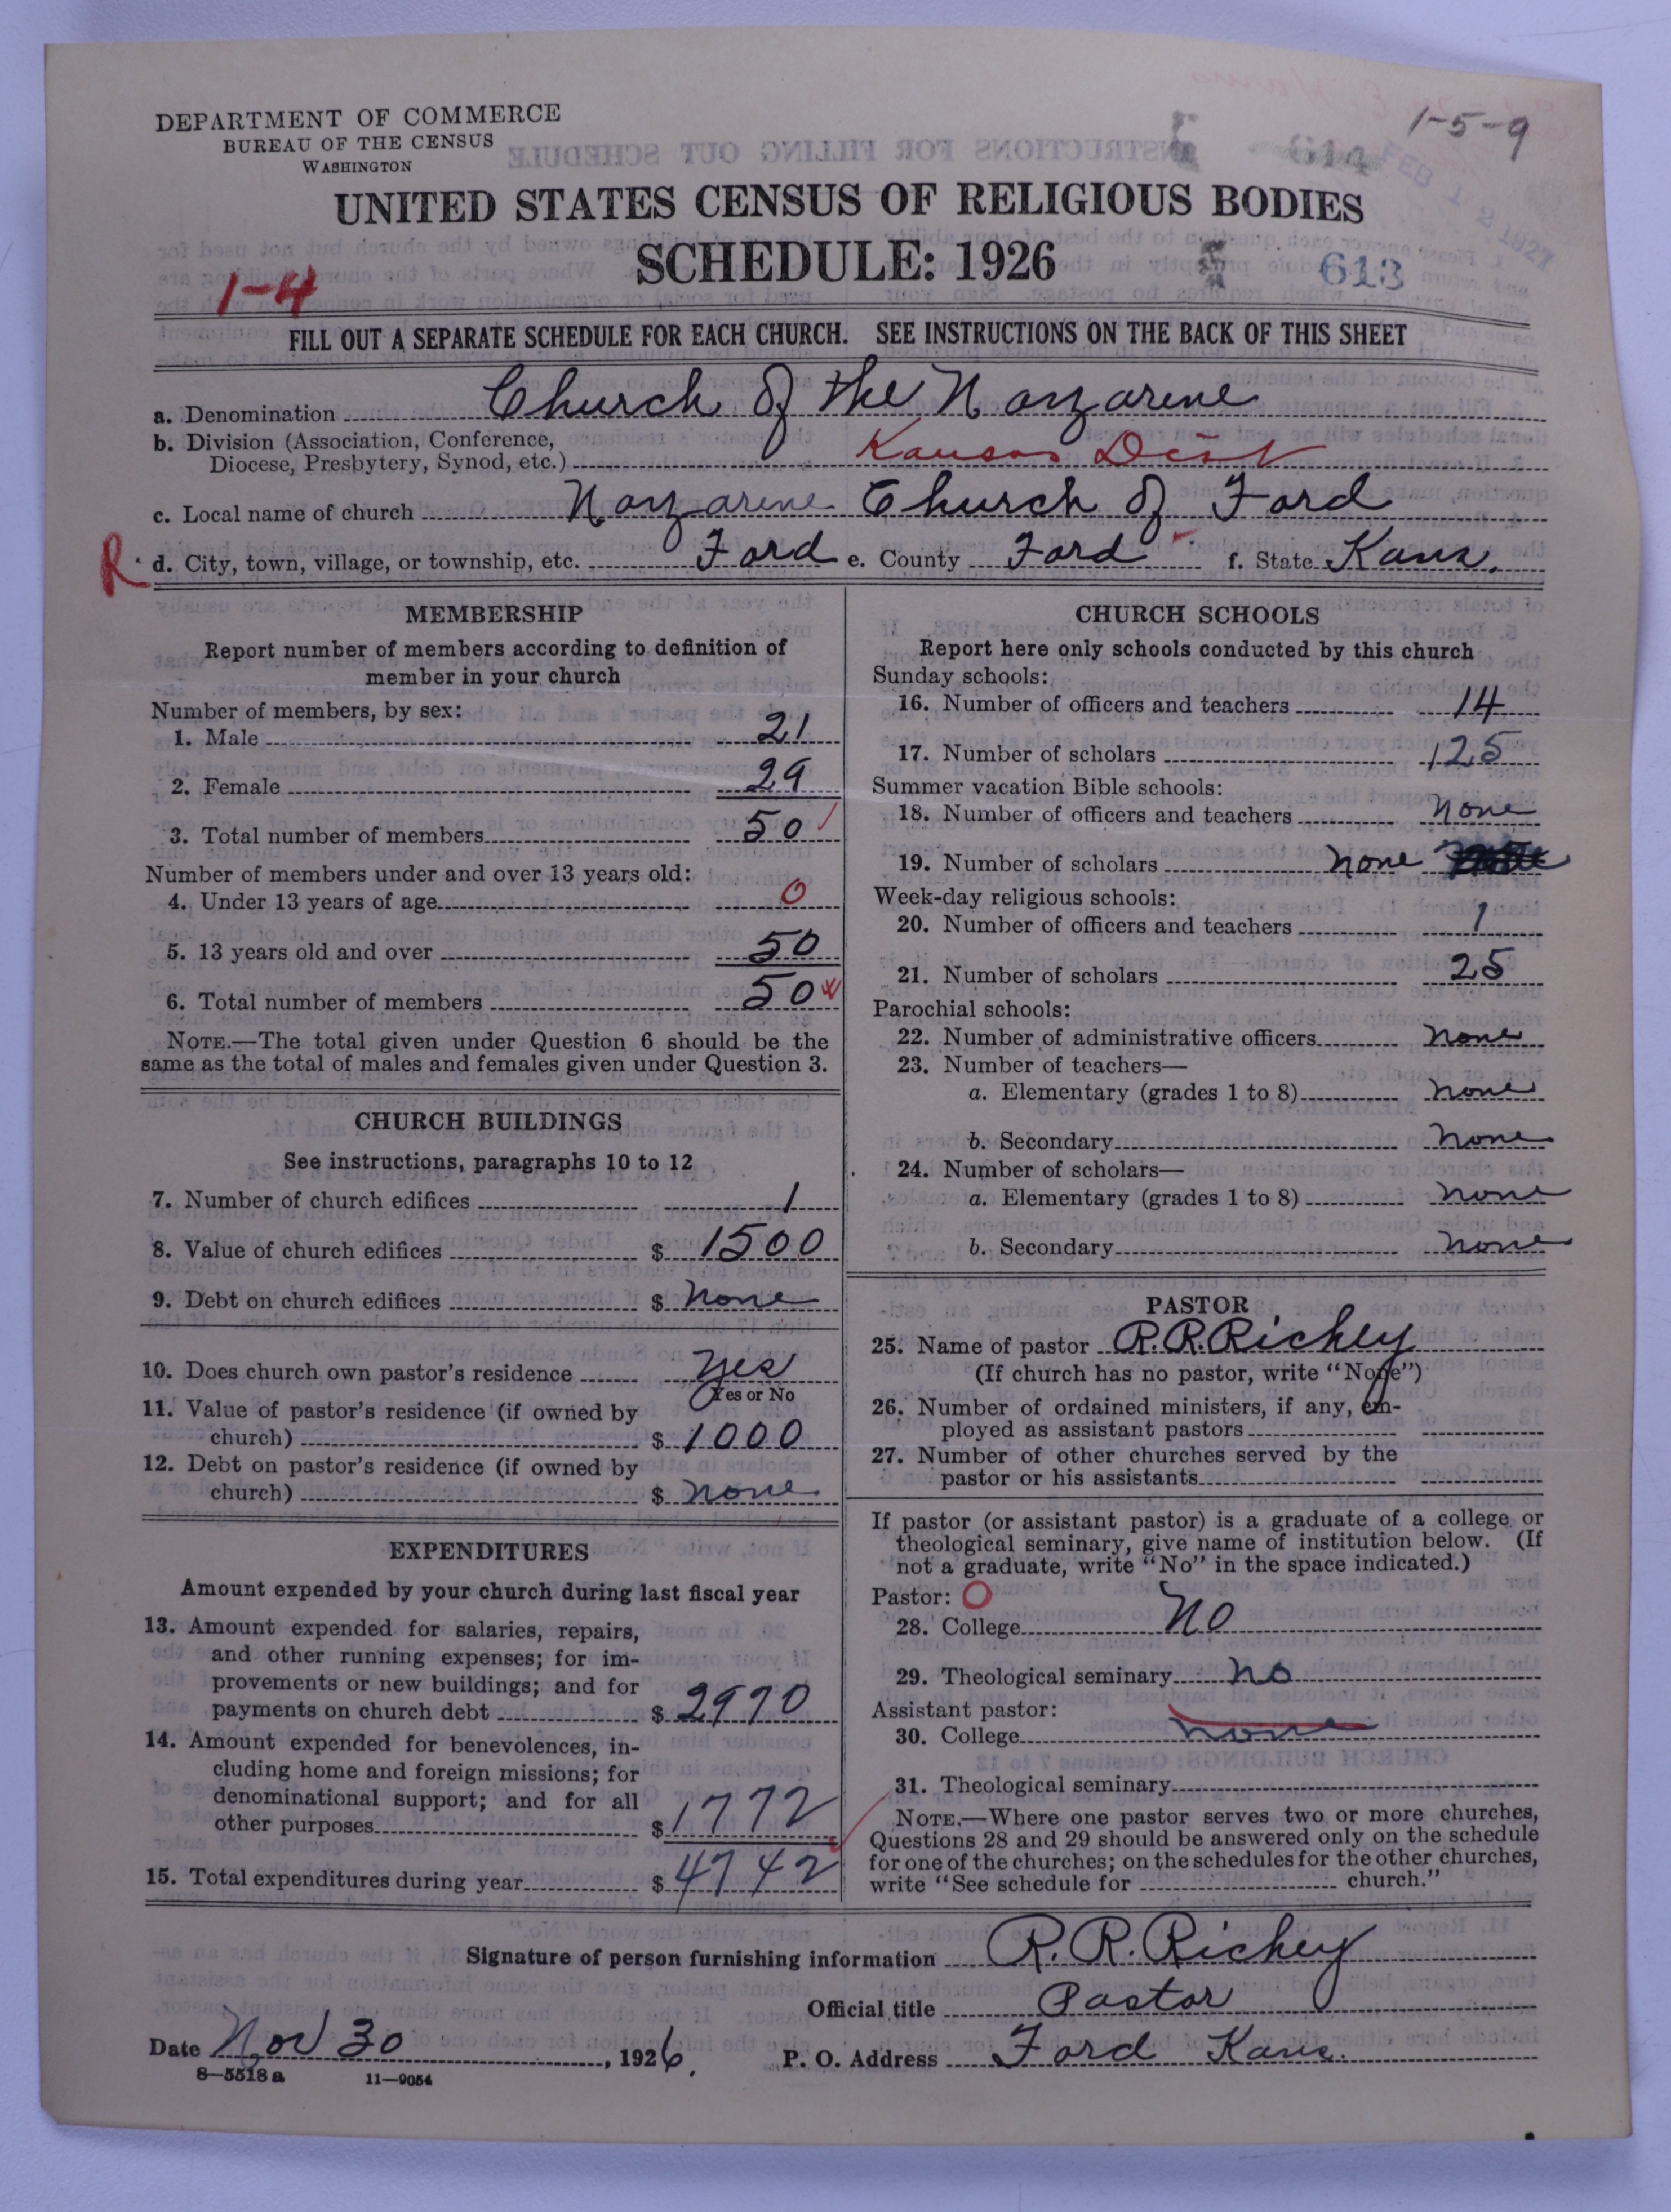 DEPARTMENT OF COMMERCE
BUREAU OF THE CENSUS
WASHINGTON
1-5-9
FEB 12 1927
614
UNITED STATES CENSUS OF RELIGIOUS BODIES
SCHEDULE: 1926
613
1-4
FILL OUT A SEPARATE SCHEDULE FOR EACH CHURCH. SEE INSTRUCTIONS ON THE BACK OF THIS SHEET
a. Denomination Church of the Nazarene
b. Division (Association, Conference,
Diocese, Presbytery, Synod, etc.) Kansas Dist
c. Local name of church Nazarene Church of Ford
R d. City, town, village, or township, etc. Ford e. County Ford f. State Kans.
MEMBERSHIP
Report number of members according to definition of
member in your church
Number of members, by sex:
1. Male 21
2. Female 29
3. Total number of members 50
Number of members under and over 13 years old:
4. Under 13 years of age 0
5. 13 years old and over 50
6. Total number of members 50
NOTE.—The total given under Question 6 should be the
same as the total of males and females given under Question 3.
CHURCH BUILDINGS
See instructions, paragraphs 10 to 12
7. Number of church edifices 1
8. Value of church edifices $ 1500
9. Debt on church edifices $ none
10. Does church own pastor's residence yes
Yes or No
11. Value of pastor's residence (if owned by
church) $ 1000
12. Debt on pastor's residence (if owned by
church) $ none
EXPENDITURES
Amount expended by your church during last fiscal year
13. Amount expended for salaries, repairs,
and other running expenses; for im-
provements or new buildings; and for
payments on church debt $ 2970
14. Amount expended for benevolences, in-
cluding home and foreign missions; for
denominational support; and for all
other purposes $ 1772
15. Total expenditures during year $ 4742
CHURCH SCHOOLS
Report here only schools conducted by this church
Sunday schools:
16. Number of officers and teachers 14
17. Number of scholars 125
Summer vacation Bible schools:
18. Number of officers and teachers none
19. Number of scholars none
Week-day religious schools:
20. Number of officers and teachers 1
21. Number of scholars 25
Parochial schools:
22. Number of administrative officers none
23. Number of teachers—
a. Elementary (grades 1 to 8) none
b. Secondary none
24. Number of scholars—
a. Elementary (grades 1 to 8) none
b. Secondary none
PASTOR
25. Name of pastor R.R. Richey
(If church has no pastor, write "None")
26. Number of ordained ministers, if any, em-
ployed as assistant pastors
27. Number of other churches served by the
pastor or his assistants
If pastor (or assistant pastor) is a graduate of a college or
theological seminary, give name of institution below. (If
not a graduate, write "No" in the space indicated.)
Pastor: O
28. College No
29. Theological seminary no
Assistant pastor:
30. College none
31. Theological seminary
NOTE.—Where one pastor serves two or more churches,
Questions 28 and 29 should be answered only on the schedule
for one of the churches; on the schedules for the other churches,
write "See schedule for church."
Signature of person furnishing information R. R. Richey
Official title Pastor
Date Nov 30, 1926. P. O. Address Ford Kans.
8—5518a 11—9054